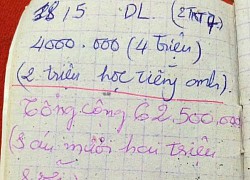 18/5 DL.
4000.000 (4 triệu)
(2 triệu học tiếng anh).
Tổng cộng 62,500,000
(Sáu mươi hai triệu